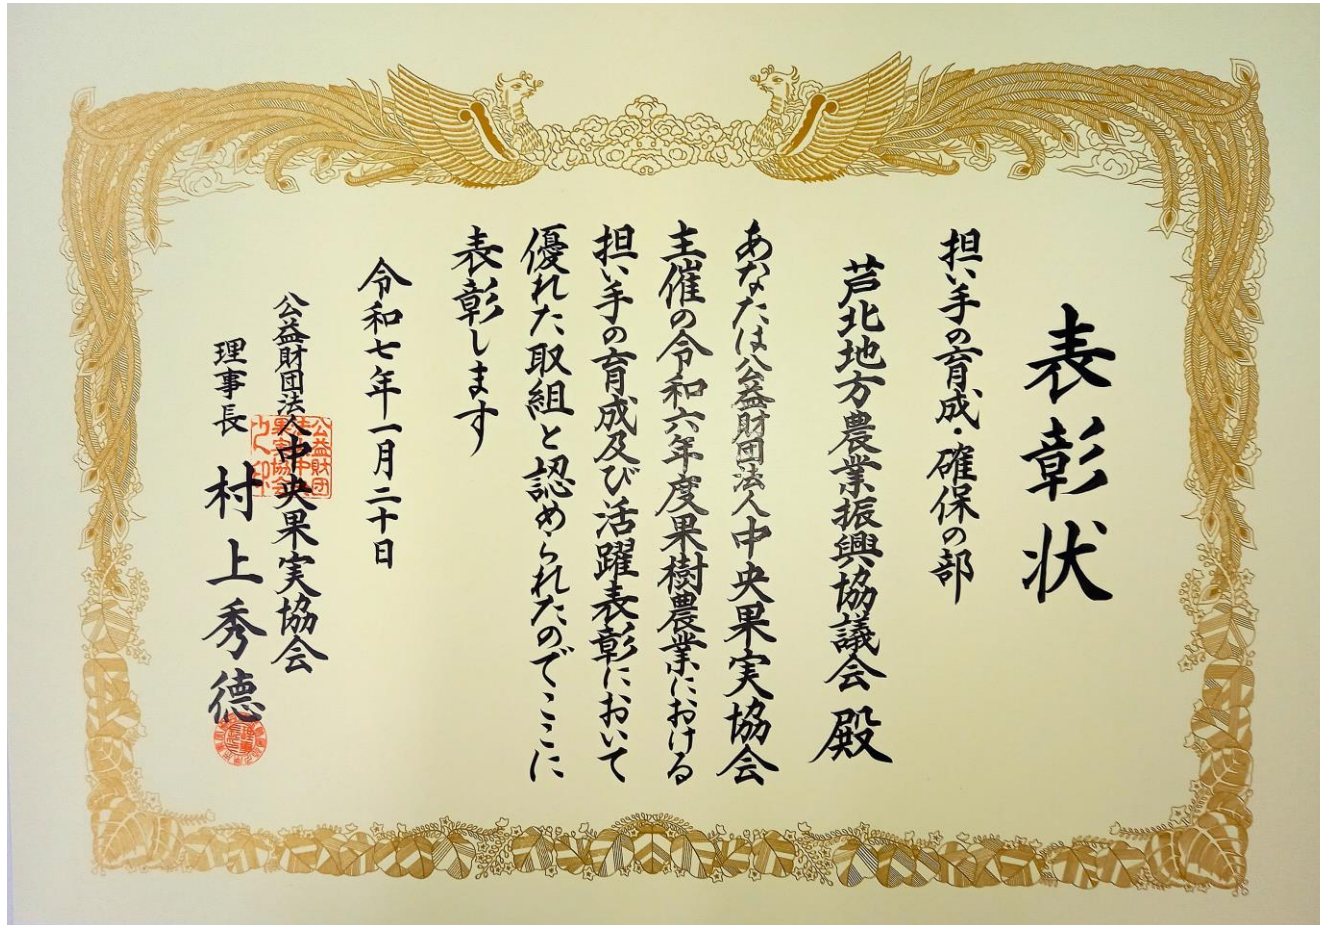 表彰状
担い手の育成・確保の部
芦北地方農業振興協議会 殿
あなたは公益財団法人中央果実協会
主催の令和六年度果樹農業における
担い手の育成及び活躍表彰において
優れた取組と認められたのでここに
表彰します
令和七年一月二十日
公益財団法人中央果実協会
理事長 村上秀德